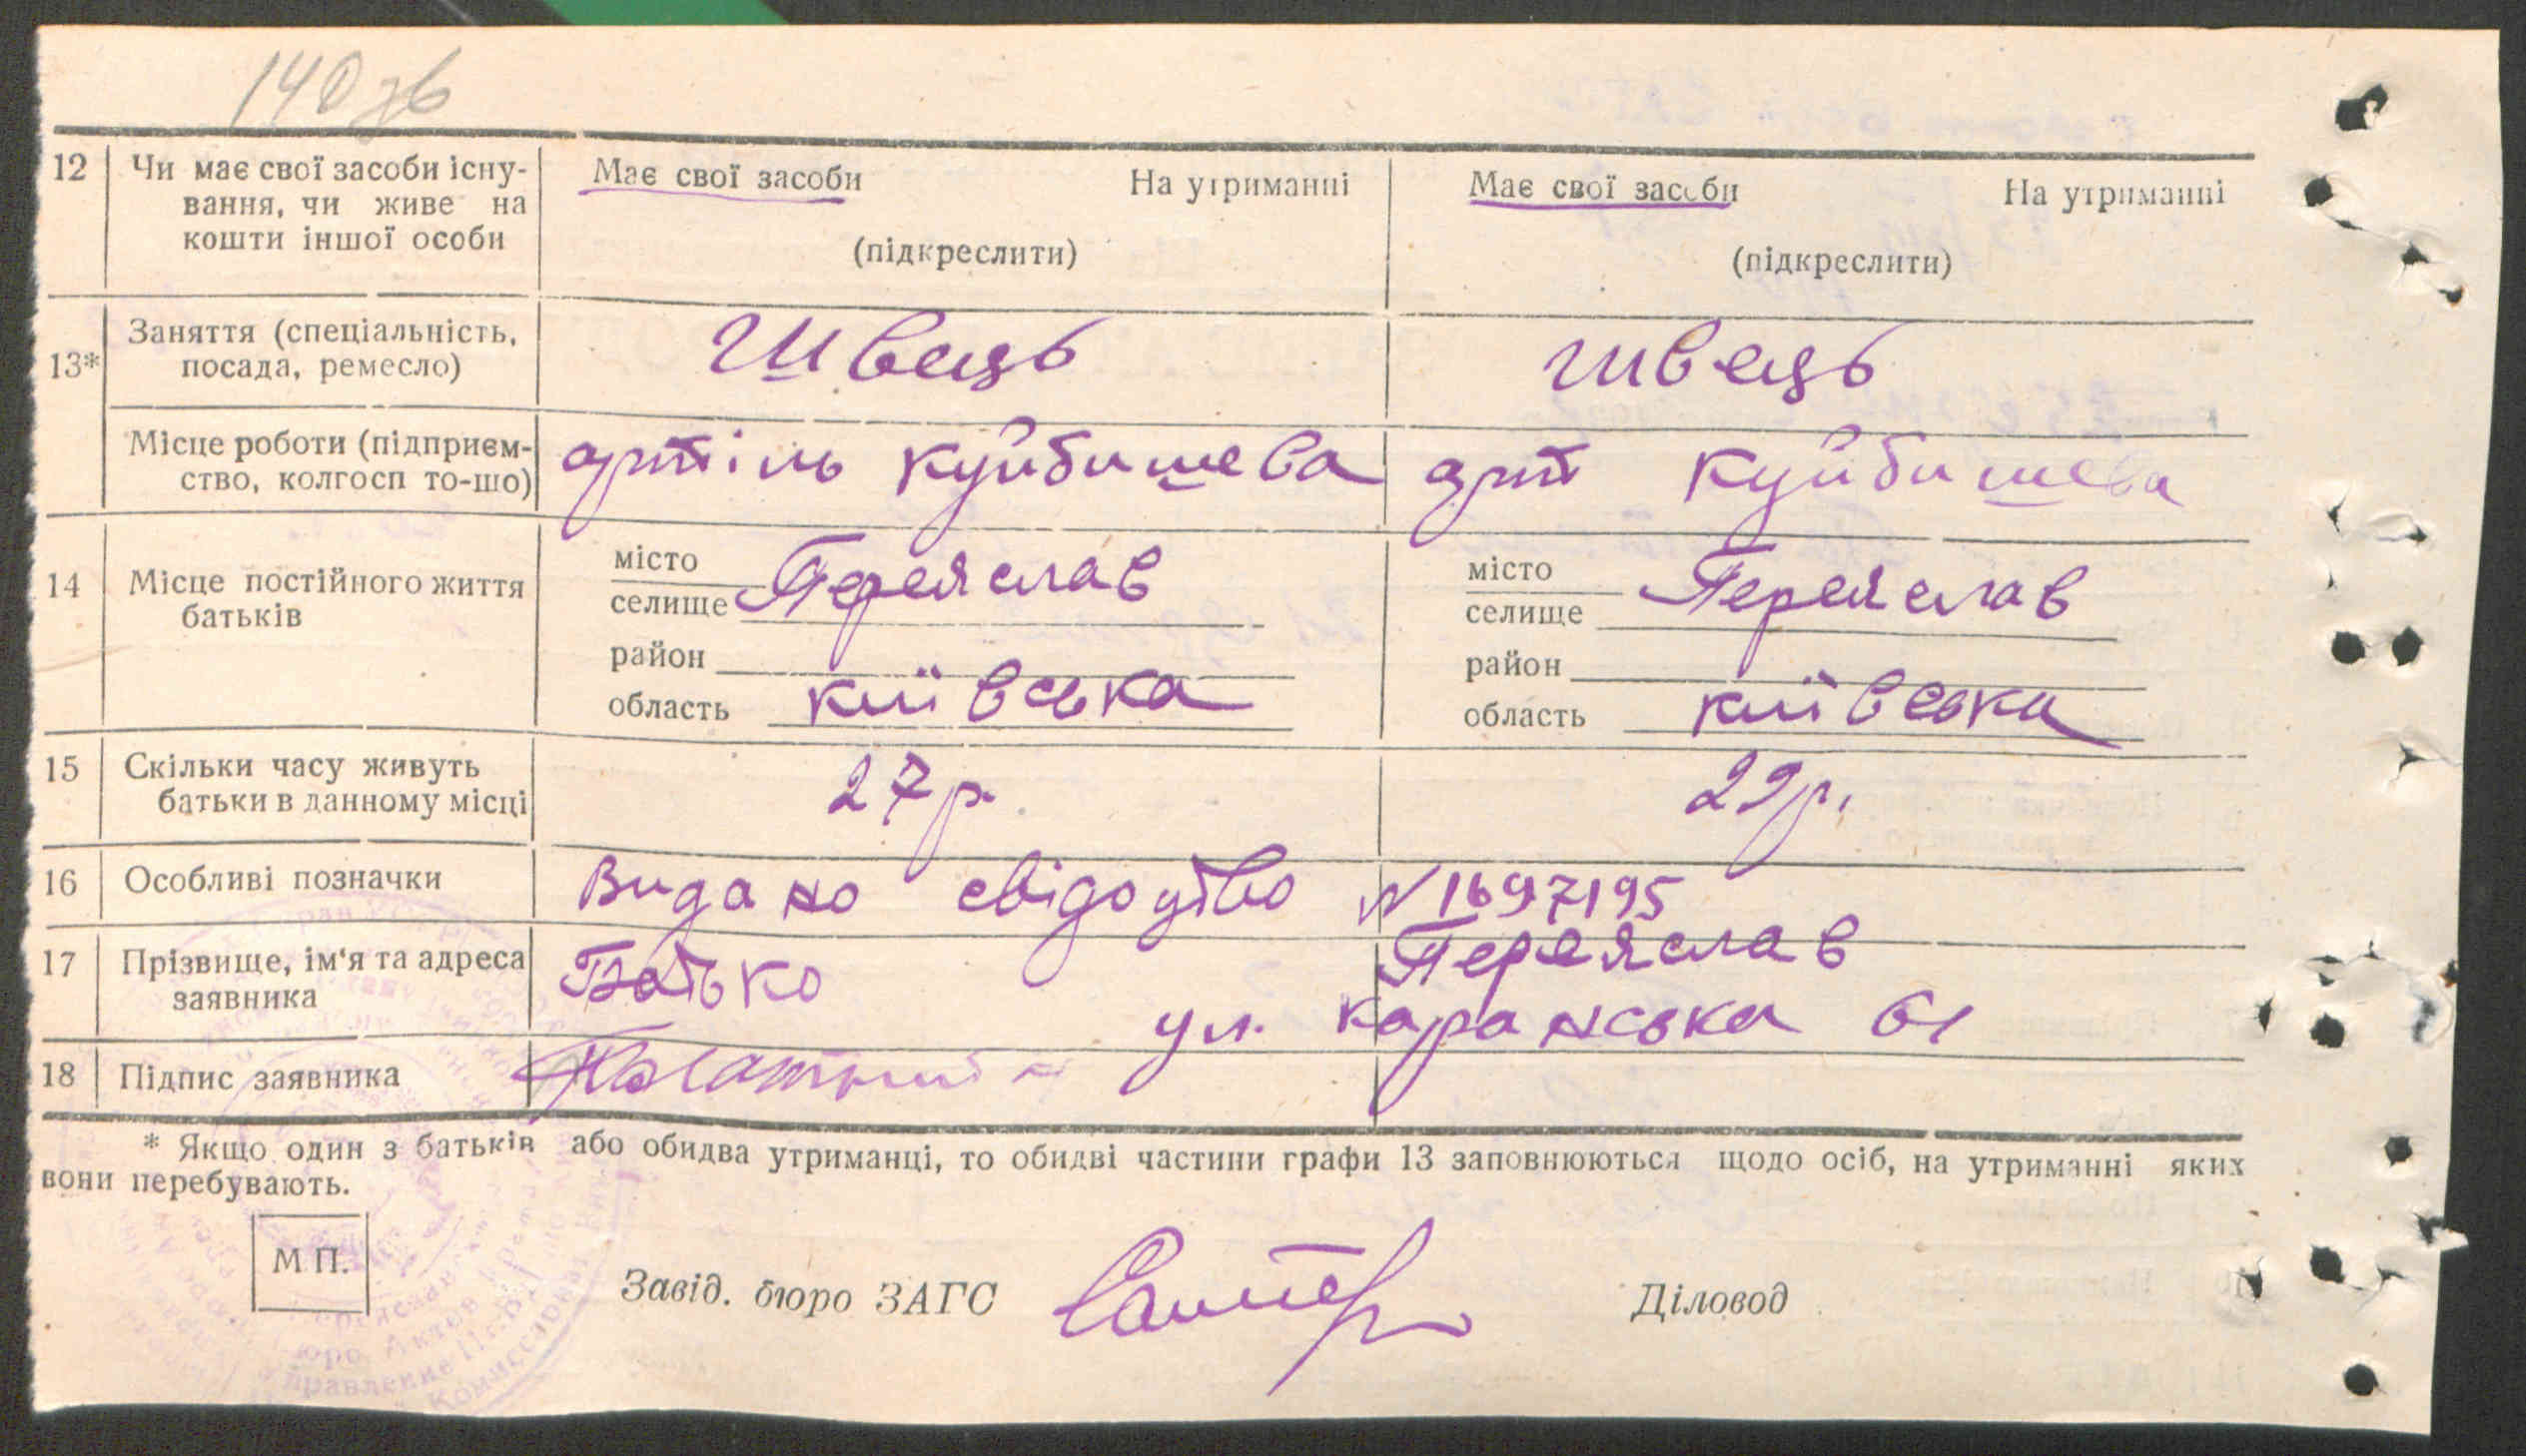 140 зв
12 Чи має свої засоби існу- Має свої засоби На утриманні Має свої засоби На утриманні
вання, чи живе на
кошти іншої особи (підкреслити) (підкреслити)
13* Заняття (спеціальність, Швець швець
посада, ремесло)
Місце роботи (підприєм- артіль куйбишева арт куйбишева
ство, колгосп то-що)
14 Місце постійного життя місто Переяслав місто Переяслав
батьків селище селище
район район
область київська область київська
15 Скільки часу живуть 27 р. 29 р.
батьки в данному місці
16 Особливі позначки Видано свідоцтво N 1697195
17 Прізвище, ім'я та адреса Батько Переяслав
заявника ул. каранська 61
18 Підпис заявника
* Якщо один з батьків або обидва утриманці, то обидві частини графи 13 заповнюються щодо осіб, на утриманні яких
вони перебувають.
М П.
Завід. бюро ЗАГС Діловод